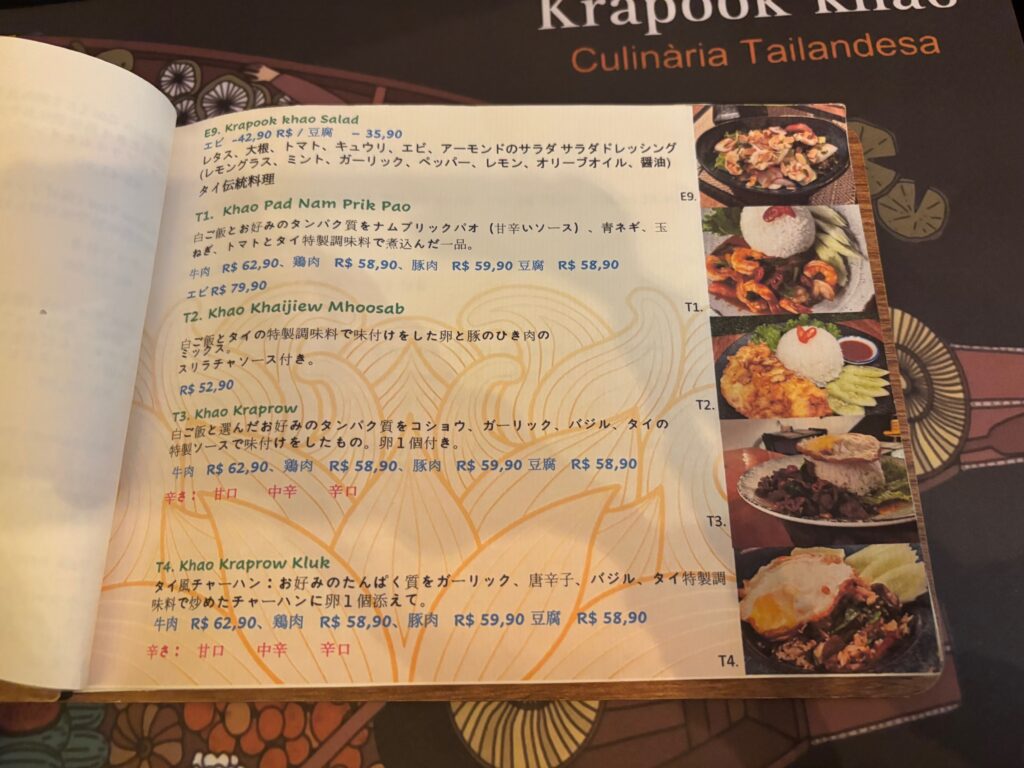 Krapook khao
Culinària Tailandesa
E9. Krapook khao Salad
エビ -42,90 R$ / 豆腐 - 35,90
レタス、大根、トマト、キュウリ、エビ、アーモンドのサラダ サラダドレッシング
(レモングラス、ミント、ガーリック、ペッパー、レモン、オリーブオイル、醤油)
タイ伝統料理
E9.
T1. Khao Pad Nam Prik Pao
白ご飯とお好みのタンパク質をナムプリックパオ(甘辛いソース)、青ネギ、玉
ねぎ、トマトとタイ特製調味料で煮込んだ一品。
牛肉 R$ 62,90、鶏肉 R$ 58,90、豚肉 R$ 59,90 豆腐 R$ 58,90
エビ R$ 79,90
T1.
T2. Khao Khaijiew Mhoosab
白ご飯とタイの特製調味料で味付けをした卵と豚のひき肉の
ミックス。
スリラチャソース付き。
R$ 52,90
T2.
T3. Khao Kraprow
白ご飯と選んだお好みのタンパク質をコショウ、ガーリック、バジル、タイの
特製ソースで味付けをしたもの。卵1個付き。
牛肉 R$ 62,90、鶏肉 R$ 58,90、豚肉 R$ 59,90 豆腐 R$ 58,90
辛さ: 甘口 中辛 辛口
T3.
T4. Khao Kraprow Kluk
タイ風チャーハン:お好みのたんぱく質をガーリック、唐辛子、バジル、タイ特製調
味料で炒めたチャーハンに卵1個添えて。
牛肉 R$ 62,90、鶏肉 R$ 58,90、豚肉 R$ 59,90 豆腐 R$ 58,90
辛さ: 甘口 中辛 辛口
T4.